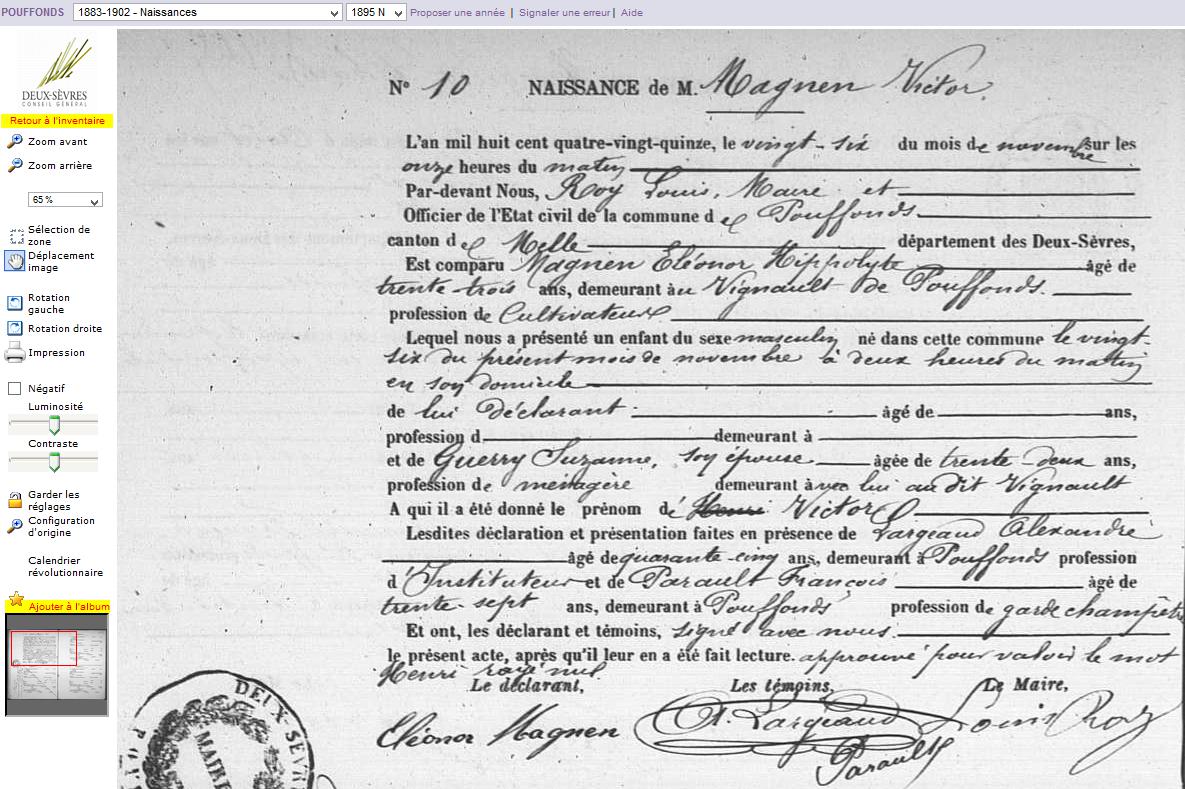 POUFFONDS 1883-1902 - Naissances 1895 N Proposer une année | Signaler une erreur | Aide
DEUX-SÈVRES
CONSEIL GÉNÉRAL
Retour à l'inventaire
Zoom avant
Zoom arrière
65 %
Sélection de
zone
Déplacement
image
Rotation
gauche
Rotation droite
Impression
Négatif
Luminosité
Contraste
Garder les
réglages
Configuration
d'origine
Calendrier
révolutionnaire
Ajouter à l'album
N° 10 NAISSANCE de M. Magnen Victor.
L'an mil huit cent quatre-vingt-quinze, le vingt-six du mois de novembre sur les
onze heures du matin
Par-devant Nous, Roy Louis, Maire et
Officier de l'Etat civil de la commune de Pouffonds
canton de Melle département des Deux-Sèvres,
Est comparu Magnen Eléonor Hippolyte âgé de
trente-trois ans, demeurant au Vignault de Pouffonds.
profession de Cultivateur
Lequel nous a présenté un enfant du sexe masculin né dans cette commune le vingt-
six du présent mois de novembre à deux heures du matin
en son domicile
de lui Déclarant âgé de ans,
profession d demeurant à
et de Guerry Suzanne, son épouse âgée de trente-deux ans,
profession de ménagère demeurant avec lui au dit Vignault
A qui il a été donné le prénom de Henri Victor
Lesdites déclaration et présentation faites en présence de Largeaud Alexandre
âgé de quarante-cinq ans, demeurant à Pouffonds profession
d'Instituteur et de Parault François âgé de
trente-sept ans, demeurant à Pouffonds profession de garde champêtre
Et ont, les déclarant et témoins, signé avec nous.
le présent acte, après qu'il leur en a été fait lecture. approuvé pour valoir le mot
Henri rayé nul
Le déclarant, Les témoins, Le Maire,
Eléonor Magnen A. Largeaud Louis Roy
Parault
DEUX-SÈVRES
MAIRIE